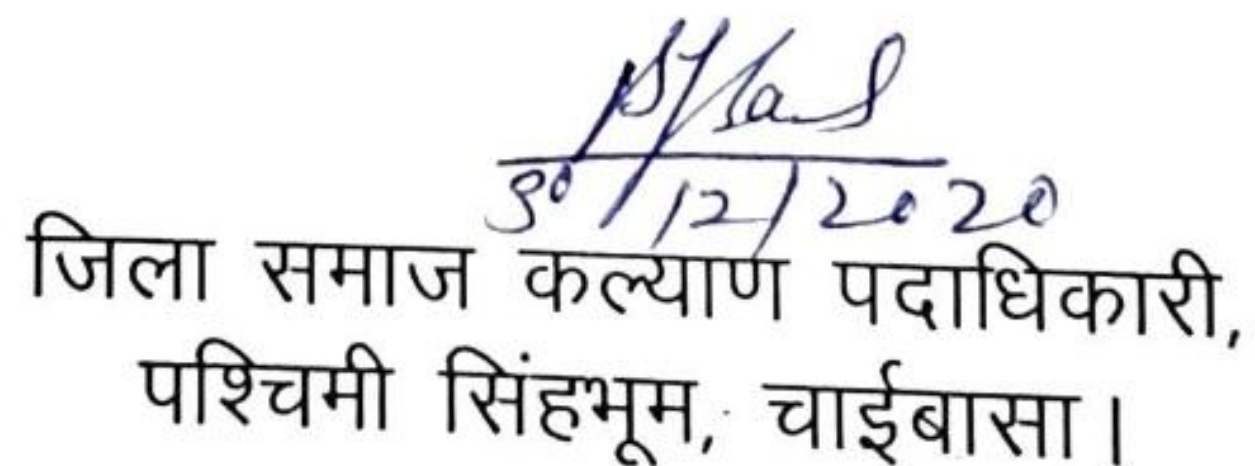 30/12/2020
जिला समाज कल्याण पदाधिकारी,
पश्चिमी सिंहभूम, चाईबासा।